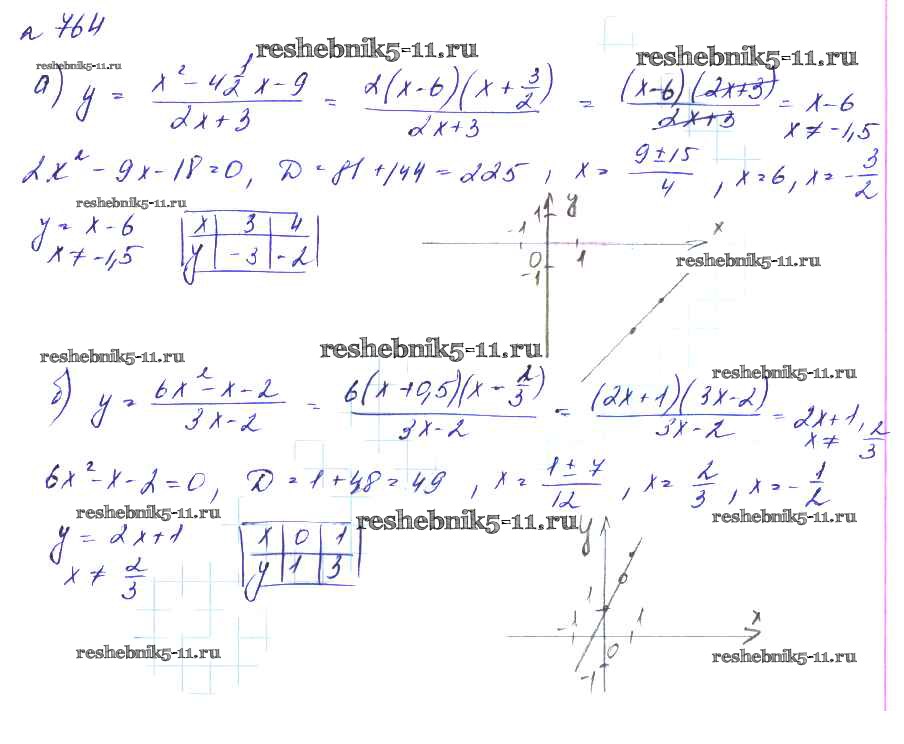 n 764
reshebnik5-11.ru
reshebnik5-11.ru reshebnik5-11.ru
а) y = (x² - 4 1/2 x - 9)/(2x+3) = 2(x-6)(x + 3/2)/(2x+3) = (x-6)(2x+3)/(2x+3) = x-6
x ≠ -1,5
2x² - 9x - 18 = 0, D = 81 + 144 = 225, x = (9 ± 15)/4, x = 6, x = -3/2
reshebnik5-11.ru
y = x - 6
x ≠ -1,5
x 3 4
y -3 -2
1 y
-1 x
0 1
-1
reshebnik5-11.ru
reshebnik5-11.ru reshebnik5-11.ru
reshebnik5-11.ru
б) y = (6x² - x - 2)/(3x-2) = 6(x+0,5)(x - 2/3)/(3x-2) = (2x+1)(3x-2)/(3x-2) = 2x+1,
x ≠ 2/3
6x² - x - 2 = 0, D = 1 + 48 = 49, x = (1 ± 7)/12, x = 2/3, x = -1/2
reshebnik5-11.ru reshebnik5-11.ru reshebnik5-11.ru
y = 2x + 1
x ≠ 2/3
x 0 1
y 1 3
y
1
-1 1 x
0
-1
reshebnik5-11.ru reshebnik5-11.ru